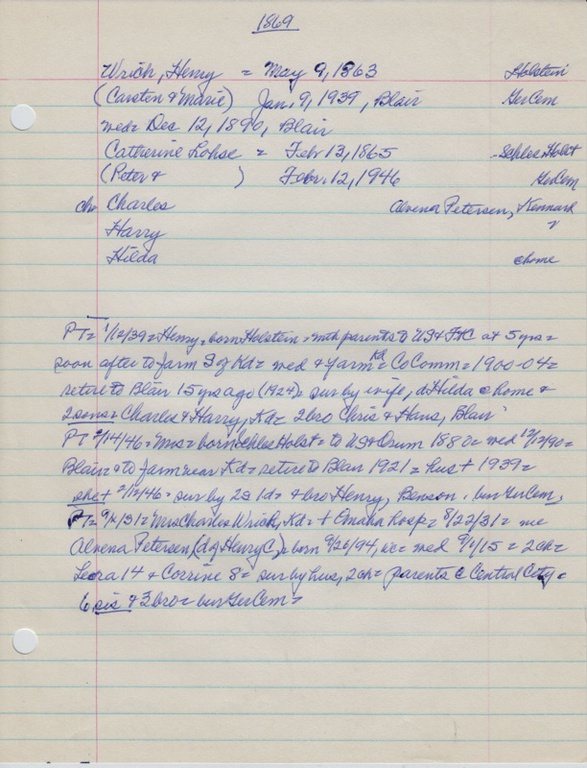 1869
Wrich, Henry = May 9, 1863 Holstein
(Carsten & Marie) Jan. 9, 1939, Blair GerCem
wed= Dec 12, 1890, Blair
Catherine Lohse = Feb 13, 1865 Schles Holst
(Peter & ) Febr. 12, 1946 GerCem
ch= Charles Alvena Petersen, Kennard
Harry
Hilda @home
PT= 1/12/39= Henry= born Holstein= with parents to US& FtC at 5 yrs=
soon after to farm S of Kd= wed & farm Kd= CoComm= 1900-04=
retire to Blair 15 yrs ago (1924)= sur by wife, d Hilda @ home &
2 sons= Charles & Harry, Kd= 2 bro Chris & Hans, Blair
PT 2/14/46= Mrs= born Schles Holst= to US& Orum 1880= wed 12/12/90=
Blair= to farm near Kd= retire to Blair 1921= hus + 1939=
she + 2/12/46= sur by 2s 1d= & bro Henry, Benson. bur GerCem,
PT= 9/ /31= Mrs Charles Wrich, Kd= + Omaha hosp= 8/22/31= nee
Alvena Petersen (d of Henry C)= born 9/26/94, wed 9/1/15= 2ch=
Leora 14 & Corrine 8= sur by hus, 2ch= parents @ Central City=
6 sis & 3 bro= bur GerCem=